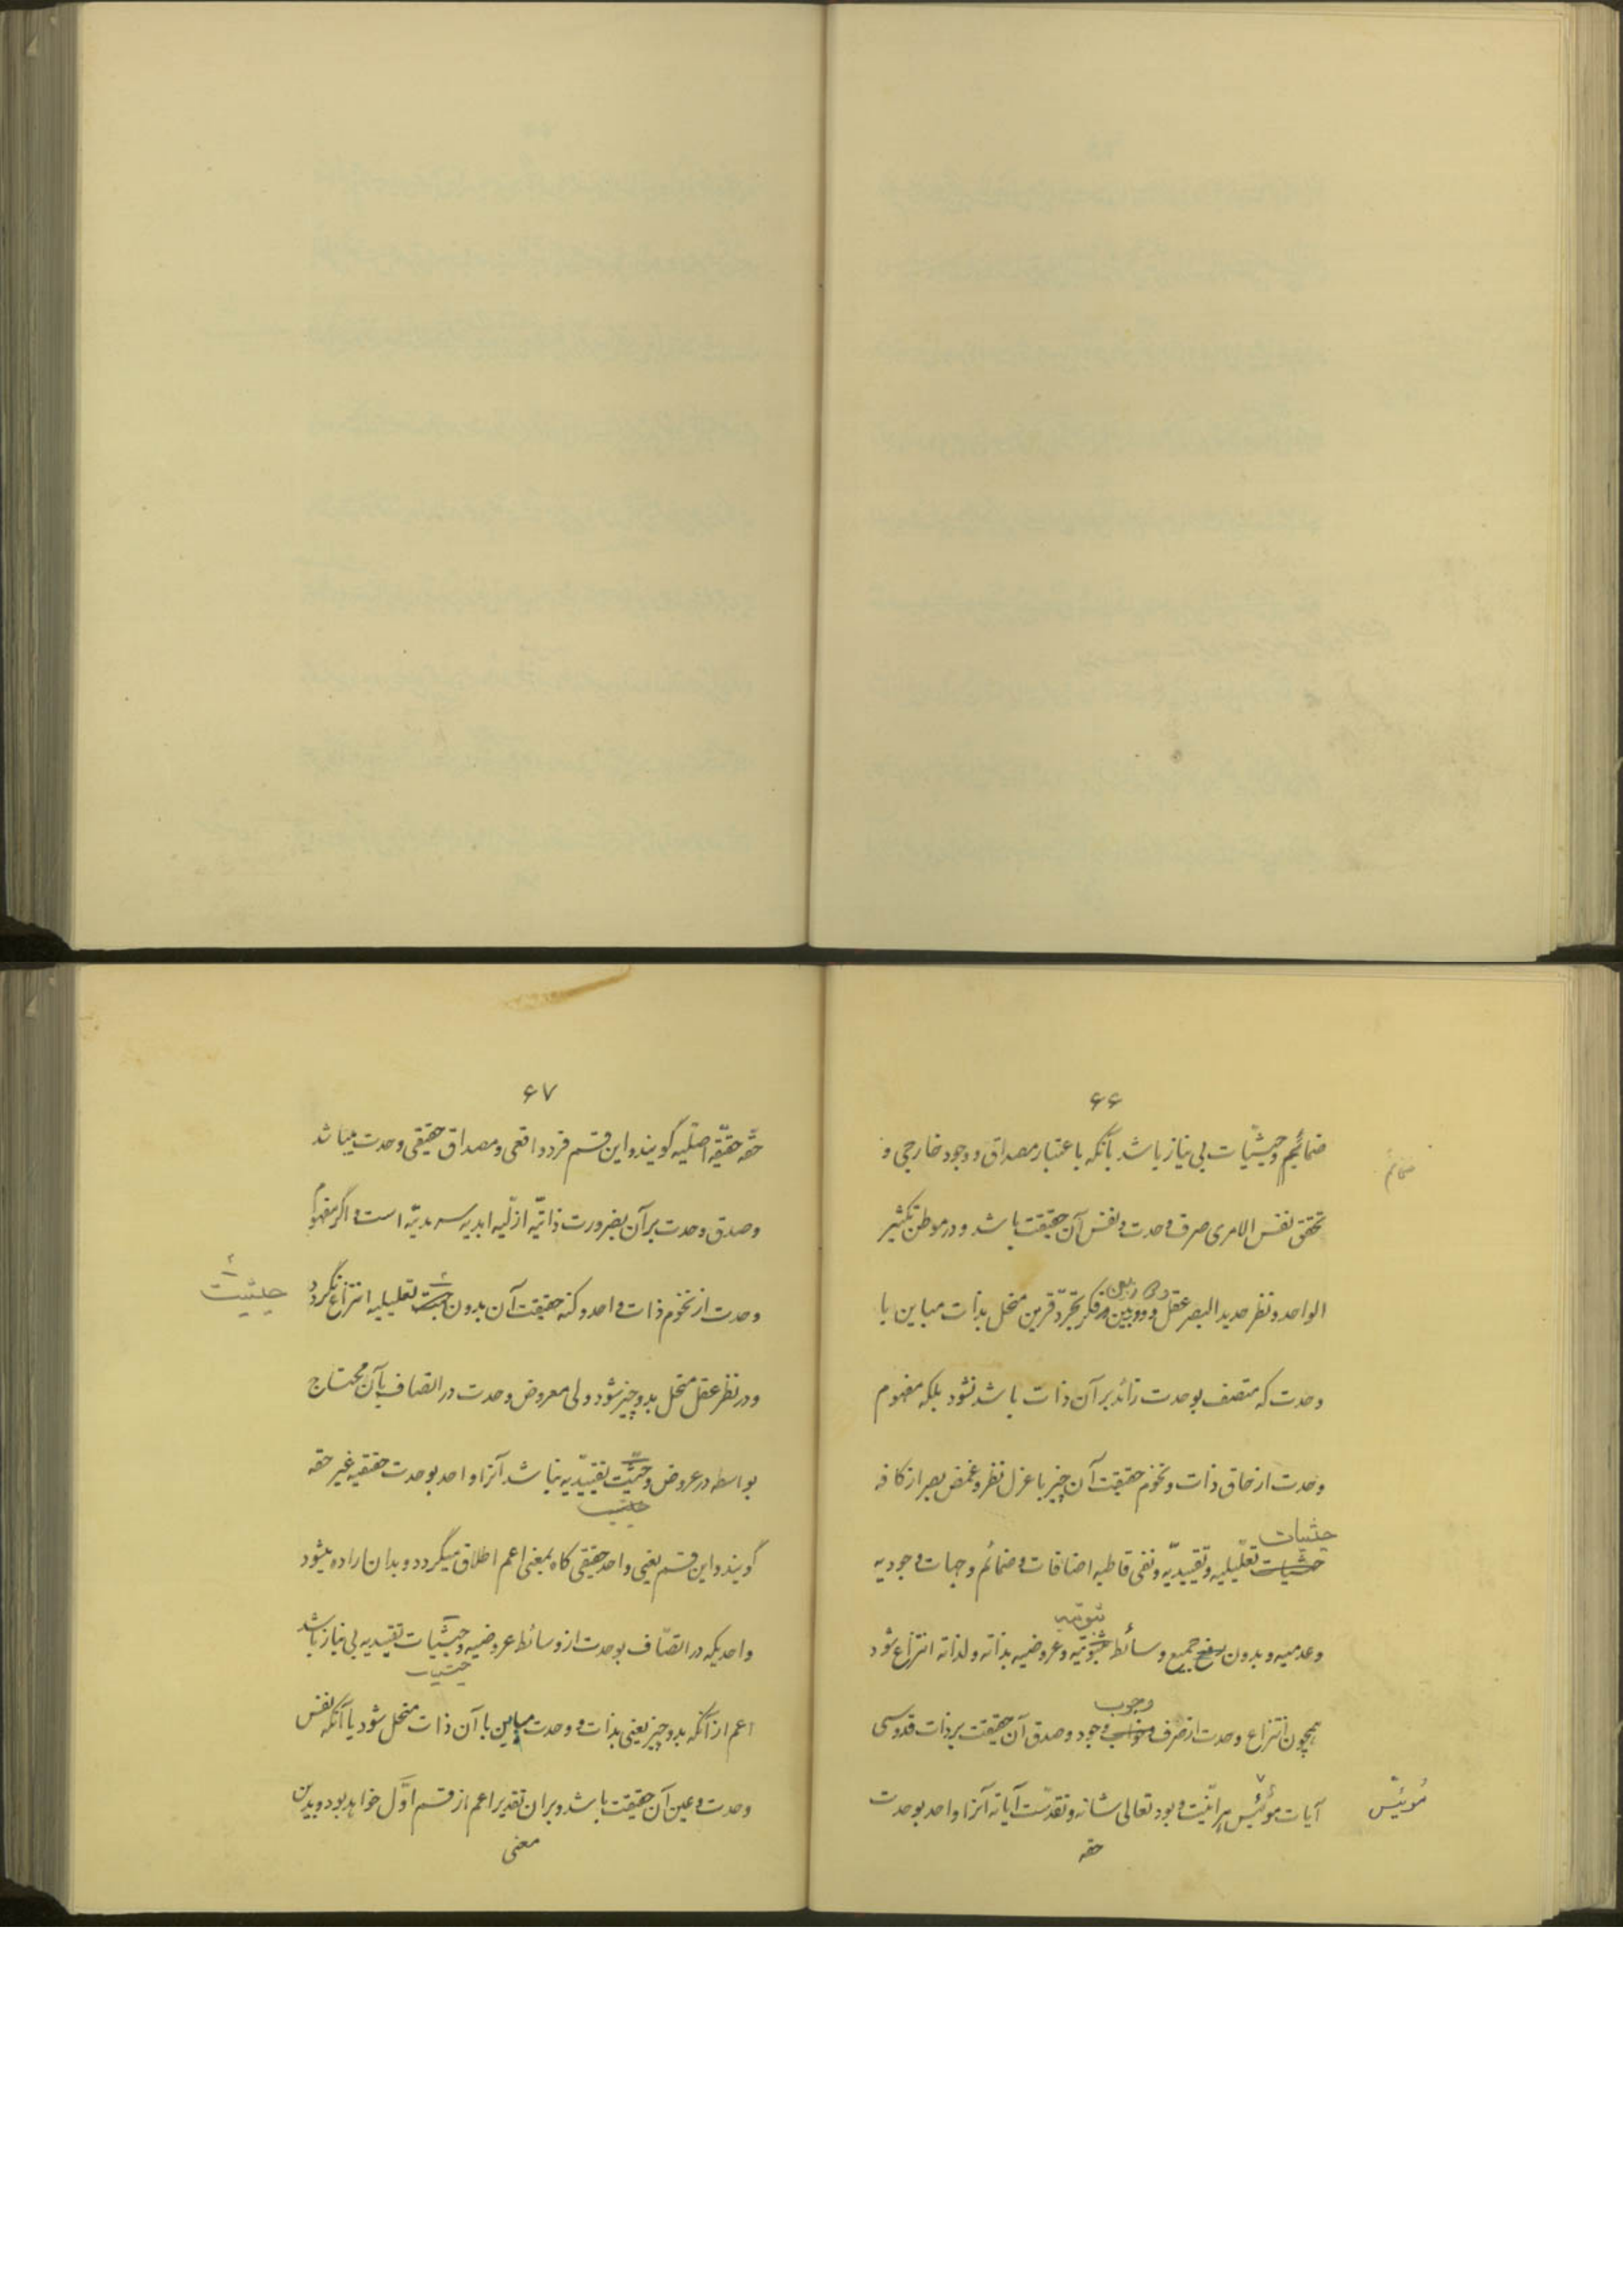 ۶۶
ضمائم وحیثیّات بی نیاز باشد بآنکه باعتبار مصداق و وجود خارجی و
ضمائم
تحقق نفس الامری صرف وحدت و نفس آن حقیقت باشد و در موطن تکثیر
الواحد و نظر حدید البصر عقل و دوربین فکر تجرّد قرین منحل بذات مباین با
دوربین
وحدت که متصف بوحدت زائد بر آن ذات باشد نشود بلکه مفهوم
وحدت از حاق ذات و تخوم حقیقت آن چیز با عزل نظر و غمض بصر از کافه
حیثیات
حیثیات تعلیلیه و تقییدیّه و نفی قاطبه اضافات و ضمائم و جهات وجودیه
ثبوتیه
وعدمیه و بدون جمیع وسائط ثبوتیّه و عروضیه بذاته و لذاته انتزاع شود
وجوب
همچون انتزاع وحدت از صرف وجود و صدق آن حقیقت بر ذات قدوسی
آیات مؤیّس انیّت و بود تعالی شانه و تقدّست آیاته آنرا واحد بوحدت
مُویّس
حقه
۶۷
حقّه حقیقیّه اصلّیه گویند و این قسم فرد واقعی و مصداق حقیقی وحدت میباشد
وصدق وحدت بر آن بضرورت ذاتیّه ازلّیه ابدیه سرمدیّه است و اگر مفهوم
وحدت از تخوم ذات واحد و کنه حقیقت آن بدون تعلیلیه انتزاع نگردد
حیثیت
ودر نظر عقل منحل بدو چیز شود ولی معروض وحدت در اتصاف بآن محتاج
بواسطه در عروض و حیثیّت تقییدیه نباشد آنرا واحد بوحدت حقیقیه غیر حقه
حیثیت
گویند و این قسم یعنی واحد حقیقی گاه بمعنی اعم اطلاق میگردد و بدان اراده میشود
واحدیکه در اتّصاف بوحدت از وسائط عروضیه و حیثیّات تقییدیه بی نیاز باشد
حیثیات
اعم از آنکه بدو چیز یعنی بذات و وحدت مباین با آن ذات منحل شود یا آنکه نفس
وحدت و عین آن حقیقت باشد و بر ان تقدیر اعم از قسم اوّل خواهد بود و بدین
معنی